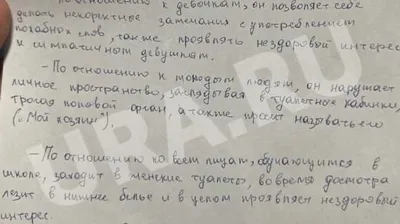 по отношению к девочкам, он позволяет себе
делать некоректные замечания с употреблением
похабных слов, также проявлять нездоровый интерес
к симпатичным девушкам.
- По отношению к молодым людям, он нарушает
личное пространство, заглядывая в туалетные кабинки,
трогая половой орган, а также просит называть его
(„Мой хозяин“).
- По отношению ко всем лицам, обучающимся в
школе, заходит в женские туалеты, во время досмотра
лезит в нижнее белье и в целом проявляет нездоровый
интерес.
URA.RU